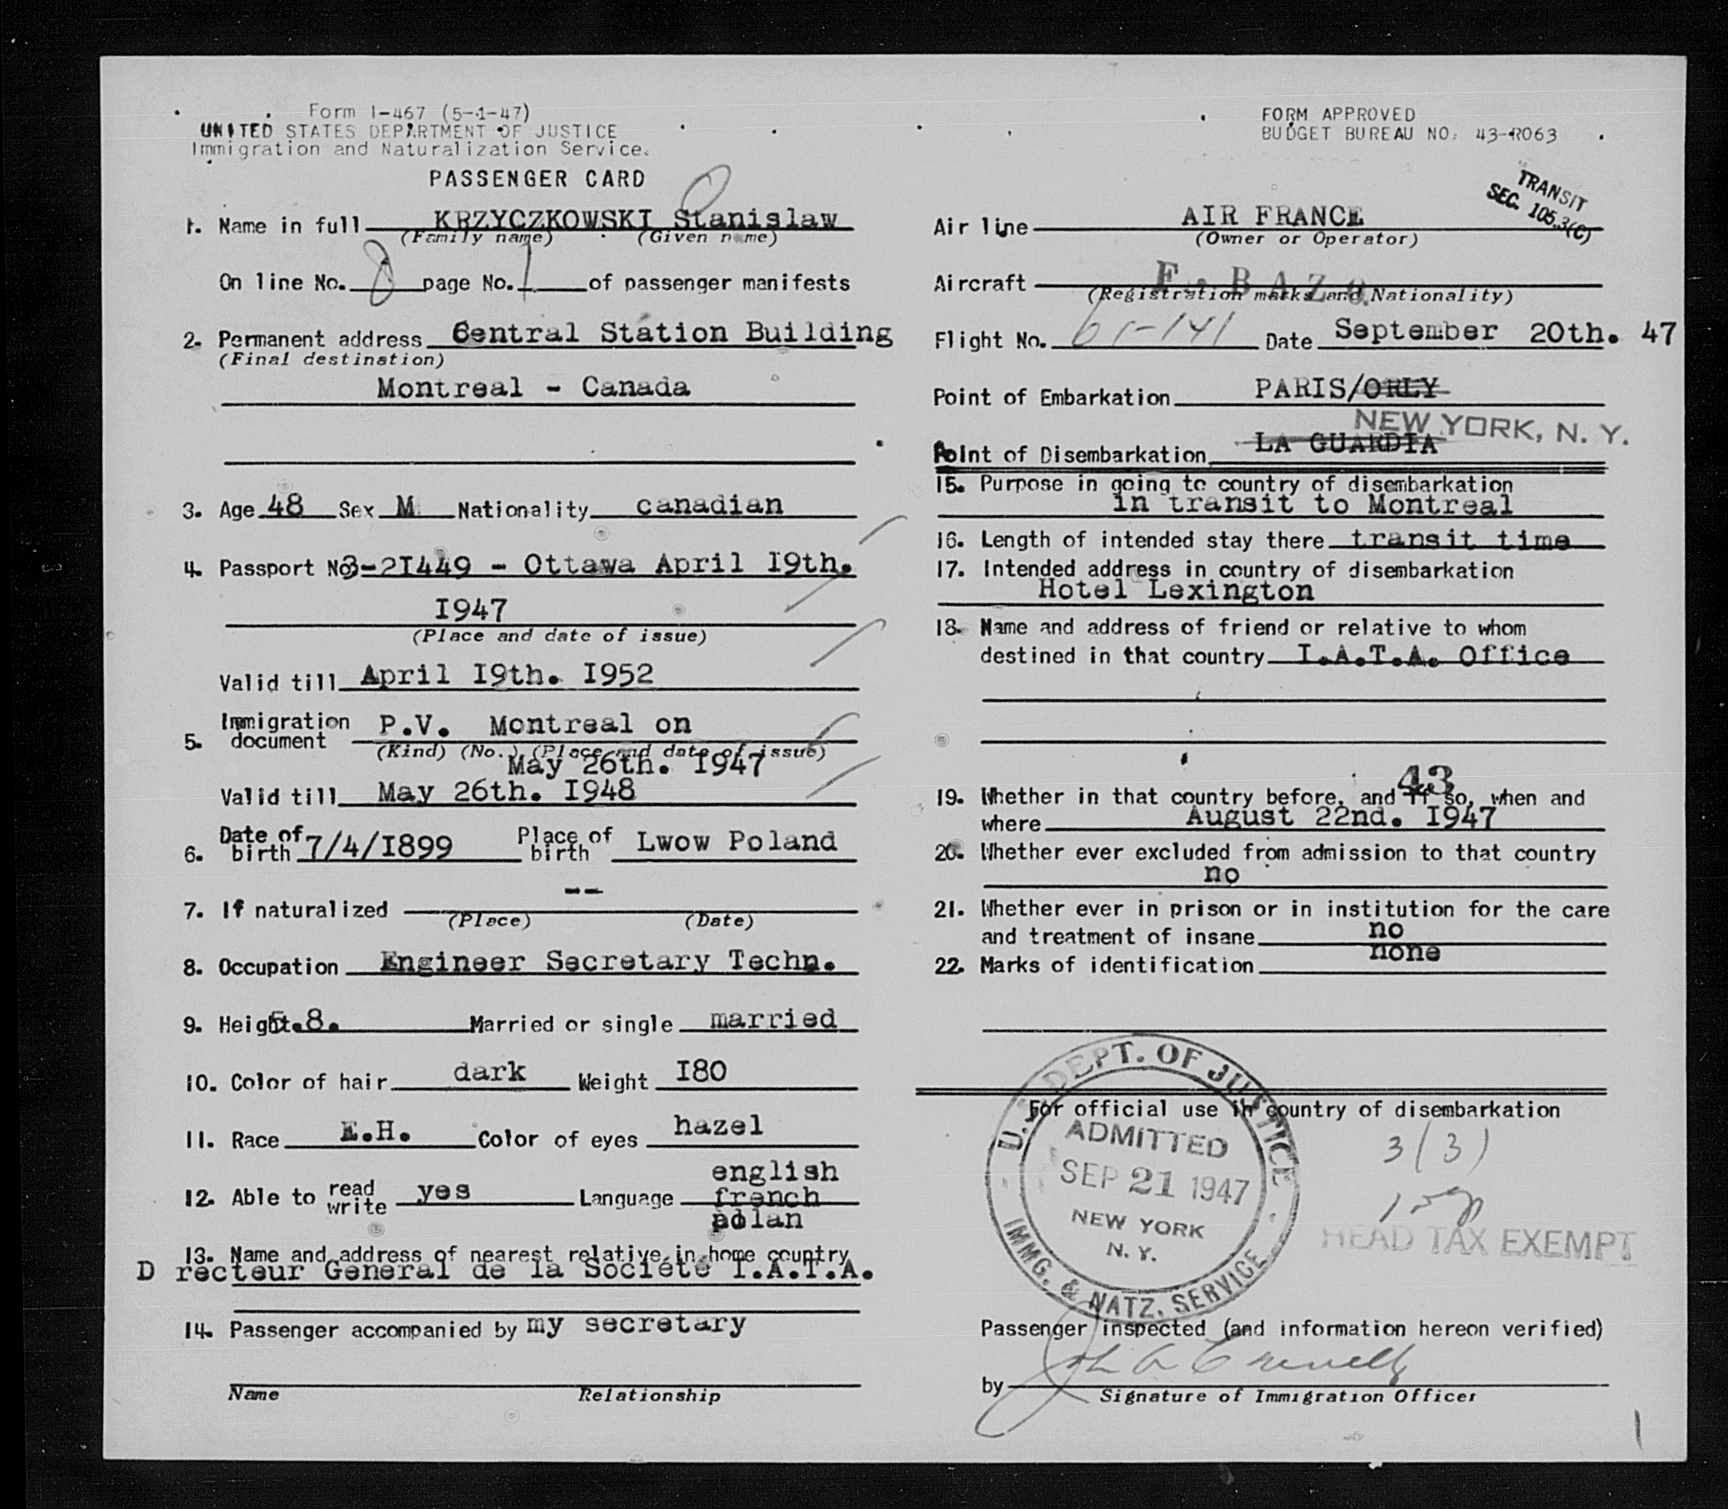 Form I-467 (5-1-47)
UNITED STATES DEPARTMENT OF JUSTICE
Immigration and Naturalization Service.
PASSENGER CARD
1. Name in full KRZYCZKOWSKI Stanislaw
(Family name) (Given name)
On line No. 8 page No. 1 of passenger manifests
2. Permanent address Central Station Building
(Final destination)
Montreal - Canada
3. Age 48 Sex M Nationality canadian
4. Passport No 3-2I449 - Ottawa April I9th.
I947
(Place and date of issue)
Valid till April I9th. I952
5. Immigration document P.V. Montreal on
(Kind) (No.) (Place and date of issue)
May 26th. I947
Valid till May 26th. I948
6. Date of birth 7/4/I899 Place of birth Lwow Poland
7. If naturalized --
(Place) (Date)
8. Occupation Engineer Secretary Techn.
9. Height 5.8. Married or single married
10. Color of hair dark Weight I80
11. Race E.H. Color of eyes hazel
12. Able to read write yes Language english
french
polan
13. Name and address of nearest relative in home country
D recteur General de la Société I.A.T.A.
14. Passenger accompanied by my secretary
Name Relationship
FORM APPROVED
BUDGET BUREAU NO. 43-R063
TRANSIT
SEC. 105.3(C)
Air line AIR FRANCE
(Owner or Operator)
Aircraft F. BAZ
(Registration marks and Nationality)
Flight No. 61-141 Date September 20th. 47
Point of Embarkation PARIS/ORLY
NEW YORK, N. Y.
Point of Disembarkation LA GUARDIA
15. Purpose in going to country of disembarkation
in transit to Montreal
16. Length of intended stay there transit time
17. Intended address in country of disembarkation
Hotel Lexington
18. Name and address of friend or relative to whom
destined in that country I.A.T.A. Office
43
19. Whether in that country before, and if so, when and
where August 22nd. I947
20. Whether ever excluded from admission to that country
no
21. Whether ever in prison or in institution for the care
and treatment of insane no
22. Marks of identification none
For official use in country of disembarkation
U.S. DEPT. OF JUSTICE
ADMITTED
SEP 21 1947
NEW YORK
N. Y.
IMMG. & NATZ. SERVICE
3(3)
HEAD TAX EXEMPT
Passenger inspected (and information hereon verified)
by
Signature of Immigration Officer